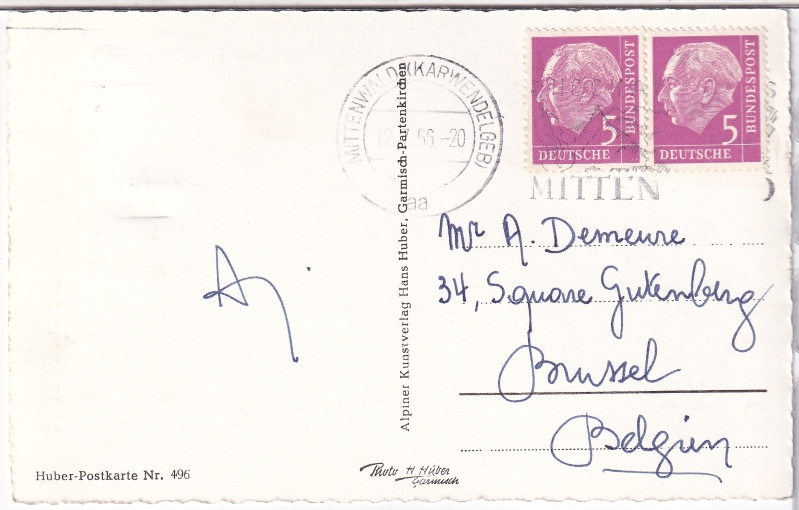 MITTENWALD (KARWENDELGEB)
56-20
aa
5
DEUTSCHE
BUNDESPOST
5
DEUTSCHE
BUNDESPOST
MITTEN
Mr A. Demeure
34, Square Gutenberg
Brussel
Belgien
Alpiner Kunstverlag Hans Huber, Garmisch-Partenkirchen
Huber-Postkarte Nr. 496
Photo H Huber
Garmisch